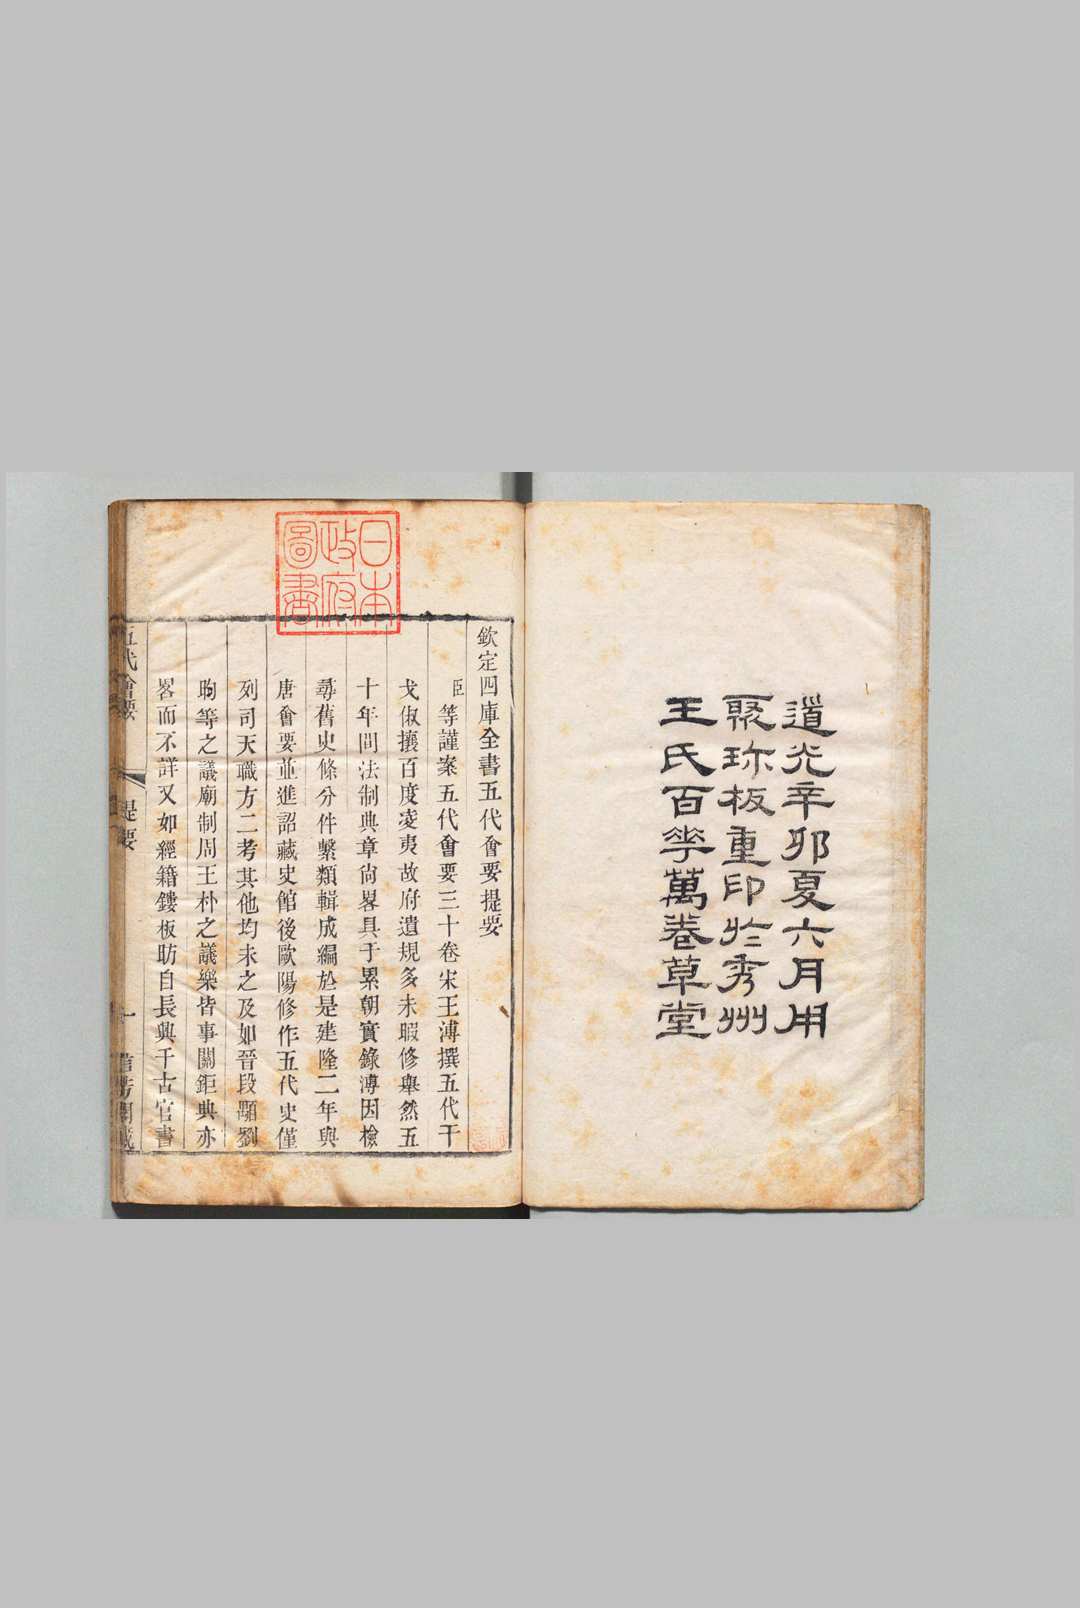 道光辛卯夏六月用
聚珍板重印於秀州
王氏百華萬卷草堂
日本
政府
圖書
欽定四庫全書五代會要提要
臣等謹案五代會要三十卷宋王溥撰五代干
戈俶攘百度凌夷故府遺規多未暇修舉然五
十年間法制典章尚畧具于累朝實錄溥因檢
尋舊史條分件繫類輯成編於是建隆二年與
唐會要並進詔藏史館後歐陽修作五代史僅
列司天職方二考其他均未之及如晉段顒劉
昫等之議廟制周王朴之議樂皆事關鉅典亦
畧而不詳又如經籍鏤板昉自長興千古官書
五代會要
提要
一